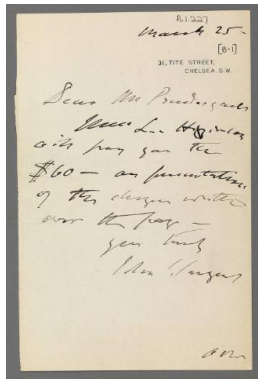 A.1.227
March 25-
[B-1]
31, TITE STREET,
CHELSEA. S.W.
Dear Mr Prendergast
Lee Higginson
will pay you the
$60 — on presentation
of the cheque written
over the page —
yrs truly
John S Sargent
over